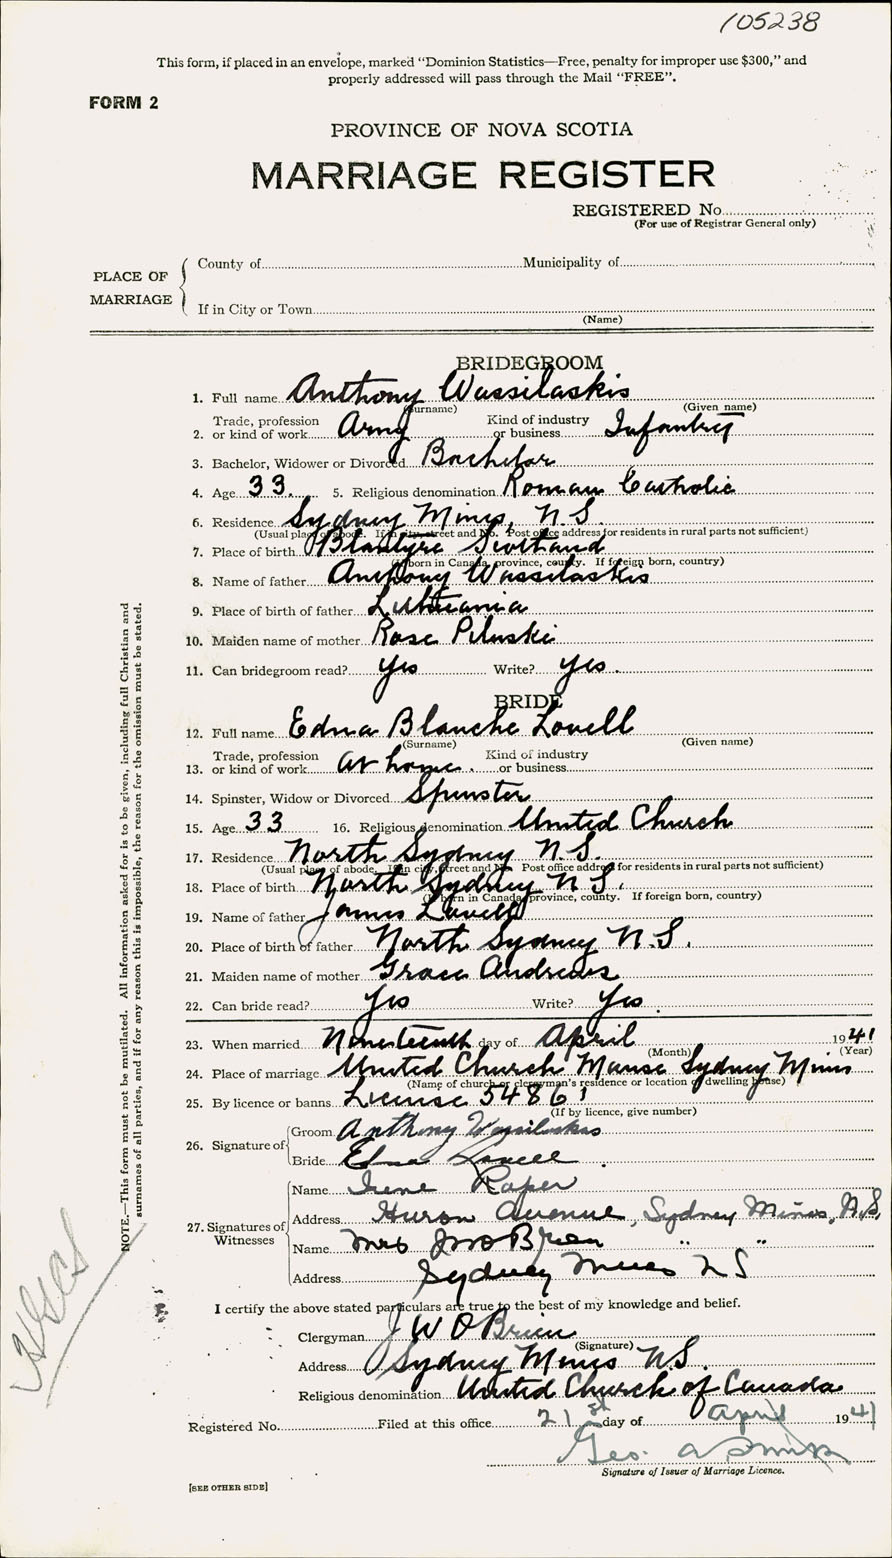 105238
This form, if placed in an envelope, marked "Dominion Statistics—Free, penalty for improper use $300," and
properly addressed will pass through the Mail "FREE".
FORM 2
PROVINCE OF NOVA SCOTIA
MARRIAGE REGISTER
REGISTERED No.
(For use of Registrar General only)
PLACE OF MARRIAGE
County of Municipality of
If in City or Town
(Name)
BRIDEGROOM
1. Full name Anthony Wassilaskis
(Surname) (Given name)
2. Trade, profession or kind of work Army Kind of industry or business Infantry
3. Bachelor, Widower or Divorced Bachelor
4. Age 33. 5. Religious denomination Roman Catholic
6. Residence Sydney Mines, N.S.
(Usual place of abode. If in city, street and No. Post office address for residents in rural parts not sufficient)
7. Place of birth Blantyre Scotland
(If born in Canada, province, county. If foreign born, country)
8. Name of father Anthony Wassilaskis
9. Place of birth of father Lithuania
10. Maiden name of mother Rose Piluskie
11. Can bridegroom read? yes Write? yes.
BRIDE
12. Full name Edna Blanche Lovell
(Surname) (Given name)
13. Trade, profession or kind of work at home. Kind of industry or business
14. Spinster, Widow or Divorced Spinster
15. Age 33 16. Religious denomination United Church
17. Residence North Sydney N.S.
(Usual place of abode. If in city, street and No. Post office address for residents in rural parts not sufficient)
18. Place of birth North Sydney N.S.
(If born in Canada, province, county. If foreign born, country)
19. Name of father James Lovell
20. Place of birth of father North Sydney N.S.
21. Maiden name of mother Grace Andrews
22. Can bride read? yes Write? yes.
23. When married Nineteenth day of April 1941
(Month) (Year)
24. Place of marriage United Church Manse Sydney Mines
(Name of church or clergyman's residence or location of dwelling house)
25. By licence or banns License 54861
(If by licence, give number)
26. Signature of Groom Anthony Wassilaskas
Bride Edna Lovell.
27. Signatures of Witnesses
Name Irene Roper
Address Huron Avenue, Sydney Mines, N.S.
Name Mrs JW O'Brien " "
Address Sydney Mines NS
I certify the above stated particulars are true to the best of my knowledge and belief.
Clergyman J W O'Brien
(Signature)
Address Sydney Mines N.S.
Religious denomination United Church of Canada
Registered No. Filed at this office 21st day of April 1941
Geo. A
Signature of Issuer of Marriage Licence.
[SEE OTHER SIDE]
NOTE.—This form must not be mutilated. All information asked for is to be given, including full Christian and
surnames of all parties, and if for any reason this is impossible, the reason for the omission must be stated.